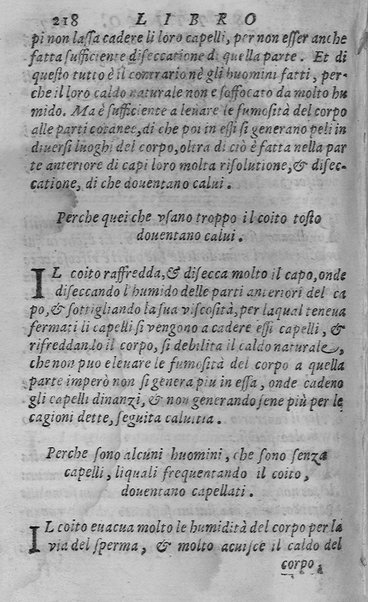 218 LIBRO
pi non lassa cadere li loro capelli, per non esser anche
fatta sufficiente diseccatione di quella parte. Et di
questo tutto è il contrario nè gli huomini fatti, per-
che il loro caldo naturale non è soffocato da molto hu
mido. Ma è sufficiente a leuare le fumosità del corpo
alle parti cotanee, di che poi in essi si generano peli in
diuersi luoghi del corpo, oltra di ciò è fatta nella par
te anteriore di capi loro molta risolutione, & disec-
catione, di che douentano calui.
Perche quei che vsano troppo il coito tosto
douentano calui.
IL coito raffredda, & disecca molto il capo, onde
diseccando l'humido delle parti anteriori del ca
po, & sottigliando la sua viscosità, per laqual teneua
fermati li capelli si vengono a cadere essi capelli, &
rifreddando il corpo, si debilita il caldo naturale,
che non puo eleuare le fumosità del corpo a quella
parte imperò non si genera piu in essa, onde cadeno
gli capelli dinanzi, & non generandosene più per le
cagioni dette, seguita caluitia.
Perche sono alcuni huomini, che sono senza
capelli, liquali frequentando il coito,
douentano capellati.
IL coito euacua molto le humidità del corpo per la
via del sperma, & molto acuisce il caldo del
corpo,